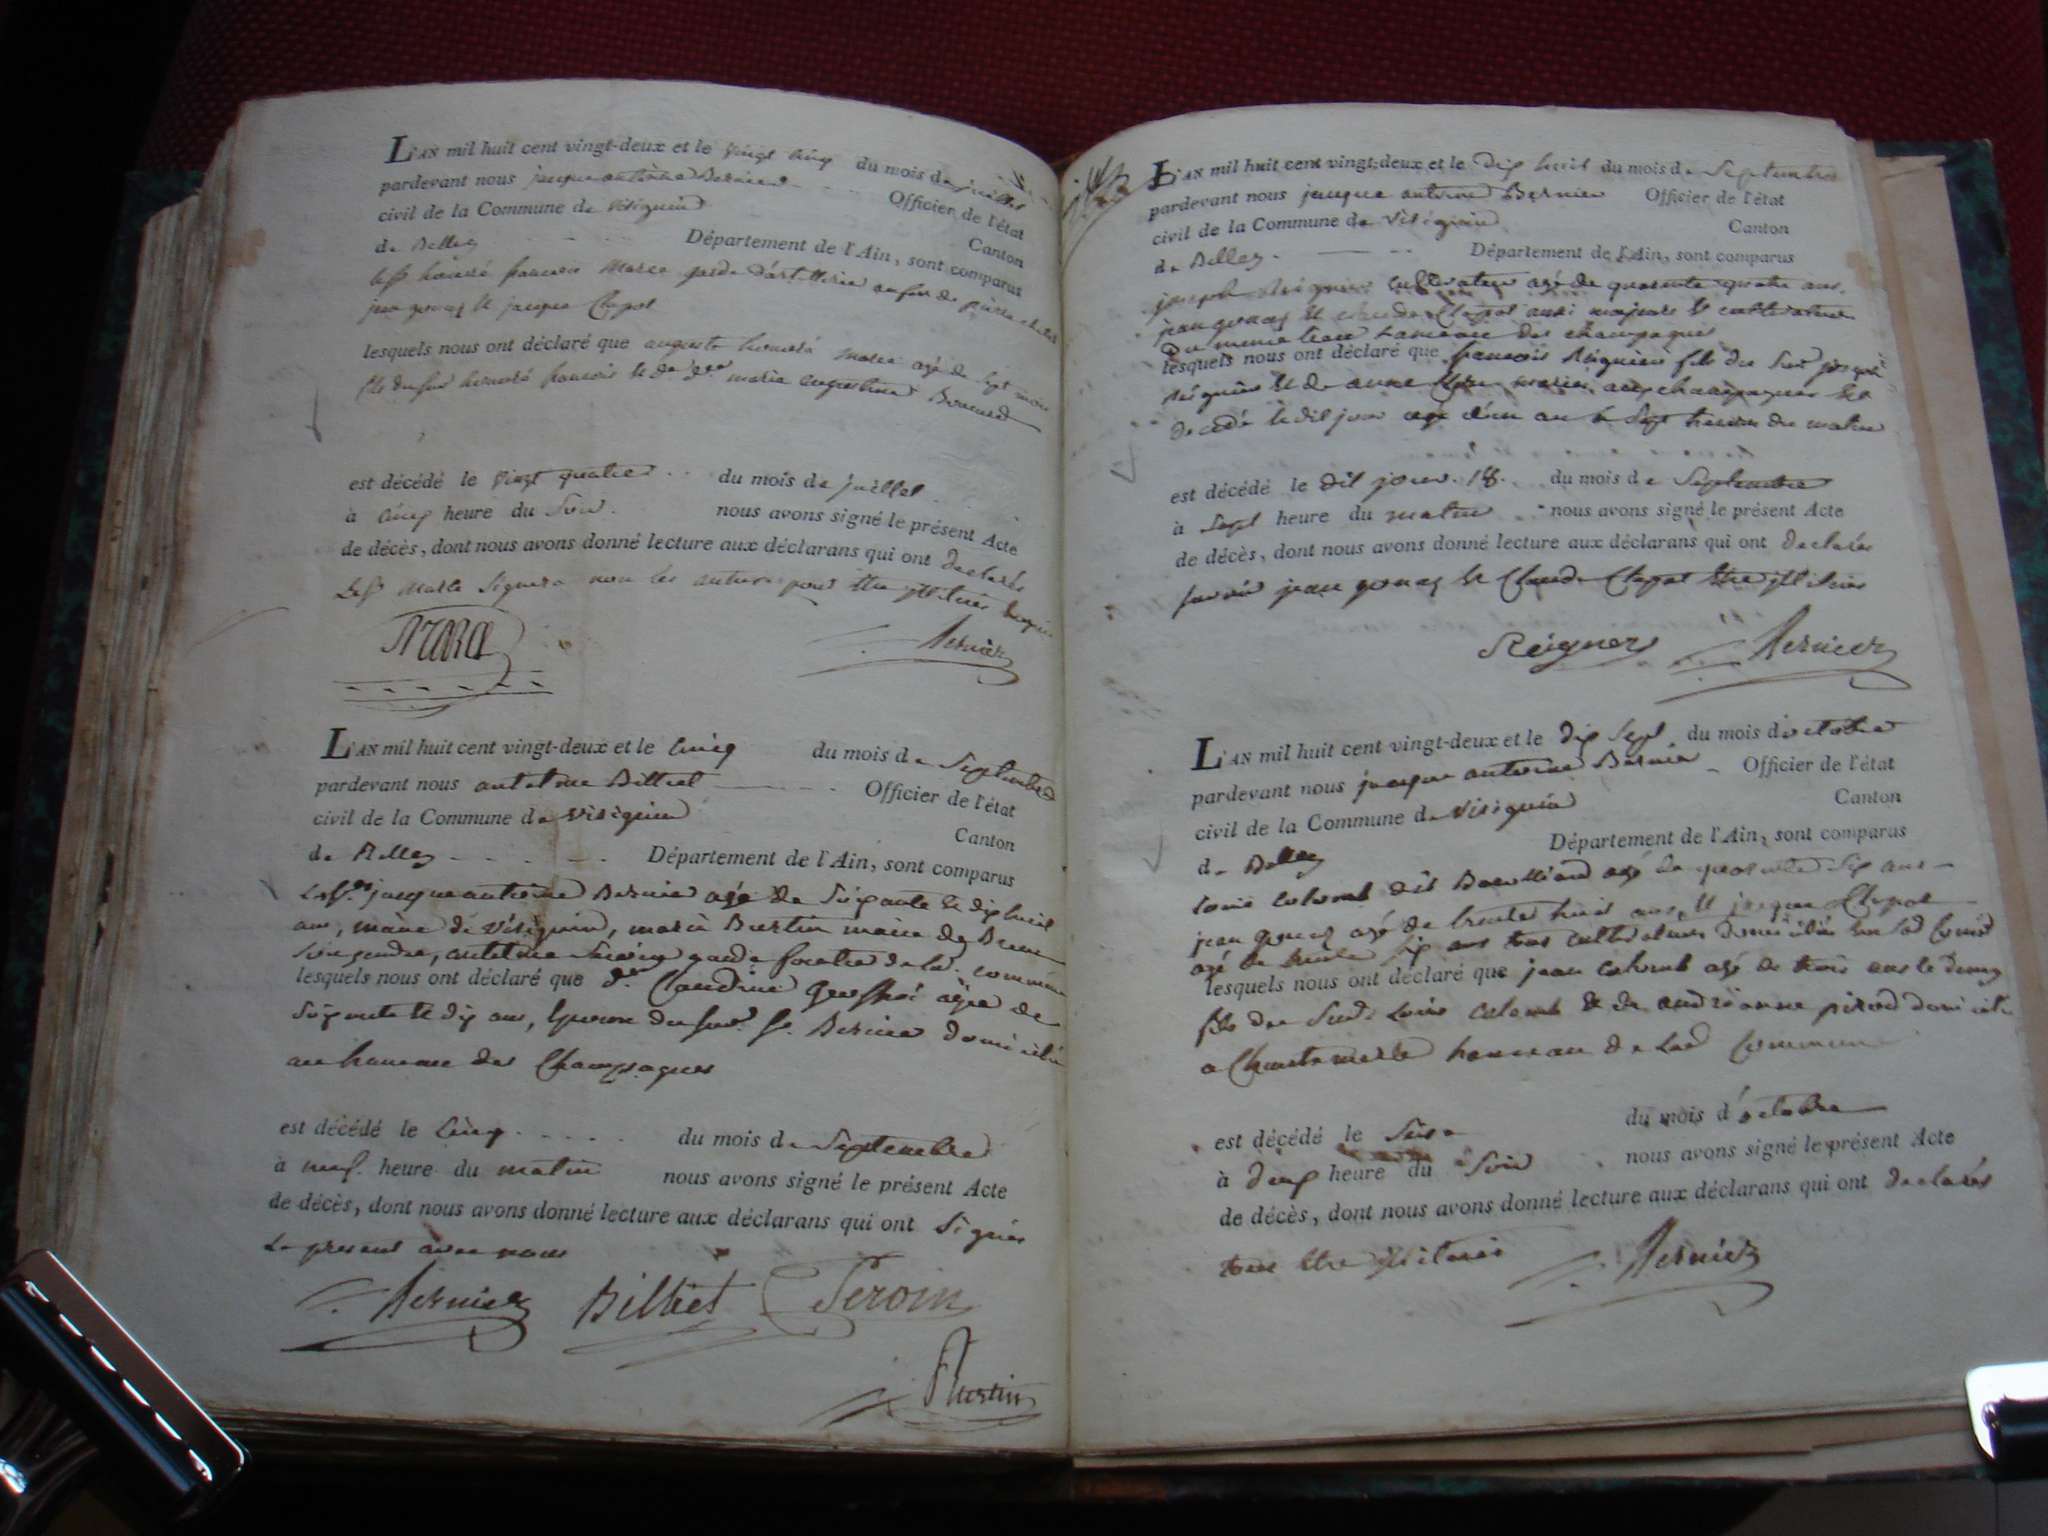 L'AN mil huit cent vingt-deux et le vingt cinq du mois de juillet
pardevant nous jacque antoine Bernier Officier de l'état
civil de la Commune de Virignin Canton
de Belley Département de l'Ain, sont comparus
honoré francois Marce garde d'artillerie au fort de pierre chatel
jean gonaz et jacque Clapot
lesquels nous ont déclaré que auguste honoré Marce agé de sept mois
fils du sieur honoré francois et de marie augustine
est décédé le vingt quatre du mois de juillet
à cinq heure du Soir nous avons signé le présent Acte
de décès, dont nous avons donné lecture aux déclarans qui ont declarés
Marce signera non les autres pour etre
Bernier
L'AN mil huit cent vingt-deux et le cinq du mois de Septembre
pardevant nous antelme Billiet Officier de l'état
civil de la Commune de Virignin Canton
de Belley Département de l'Ain, sont comparus
jacque antoine Bernier agé de soixante et dix huit
ans, maire de Virignin, Burtin maire de Brens
son gendre, antelme garde foretier de lad. commune
lesquels nous ont déclaré que de Claudine agée de
soixante et dix ans, epouse dud. sr. Bernier domicilié
au hameau des Champagnes
est décédé le cinq du mois de Septembre
à neuf heure du matin nous avons signé le présent Acte
de décès, dont nous avons donné lecture aux déclarans qui ont Signés
Le present avec nous
Bernier Billiet Seroin
Burtin
L'AN mil huit cent vingt-deux et le dix huit du mois de Septembre
pardevant nous jacque antoine Bernier Officier de l'état
civil de la Commune de Virignin Canton
de Belley Département de l'Ain, sont comparus
joseph cultivateur agé de quarente quatre ans
jean gonaz et claude Clapot aussi majeurs et cultivateurs
du meme lieu hameau des champagnes
lesquels nous ont déclaré que francois fils du joseph
et de anne aux champagnes est
decedé le dit jour agé d'un an à sept heures du matin
est décédé le dit jour 18 du mois de Septembre
à Sept heure du matin nous avons signé le présent Acte
de décès, dont nous avons donné lecture aux déclarans qui ont declarés
savoir jean gonaz et Claude Clapot etre
Reignier Bernier
L'AN mil huit cent vingt-deux et le dix Sept du mois d'octobre
pardevant nous jacque antoine Bernier Officier de l'état
civil de la Commune de Virignin Canton
de Belley Département de l'Ain, sont comparus
Louis colomb dit agé de quarente six ans
jean gonaz agé de trente huit ans, et jacque Clapot
agé de trente six ans tous cultivateurs domiciliés
lesquels nous ont déclaré que jean colomb agé de trois ans et demy
fils du Sud. Louis colomb et de andréanne pirod domicilié
a Chantemerle hameau de lad Commune
est décédé le Seize du mois d'octobre
à deux heure du Soir nous avons signé le présent Acte
de décès, dont nous avons donné lecture aux déclarans qui ont declarés
tous etre
Bernier